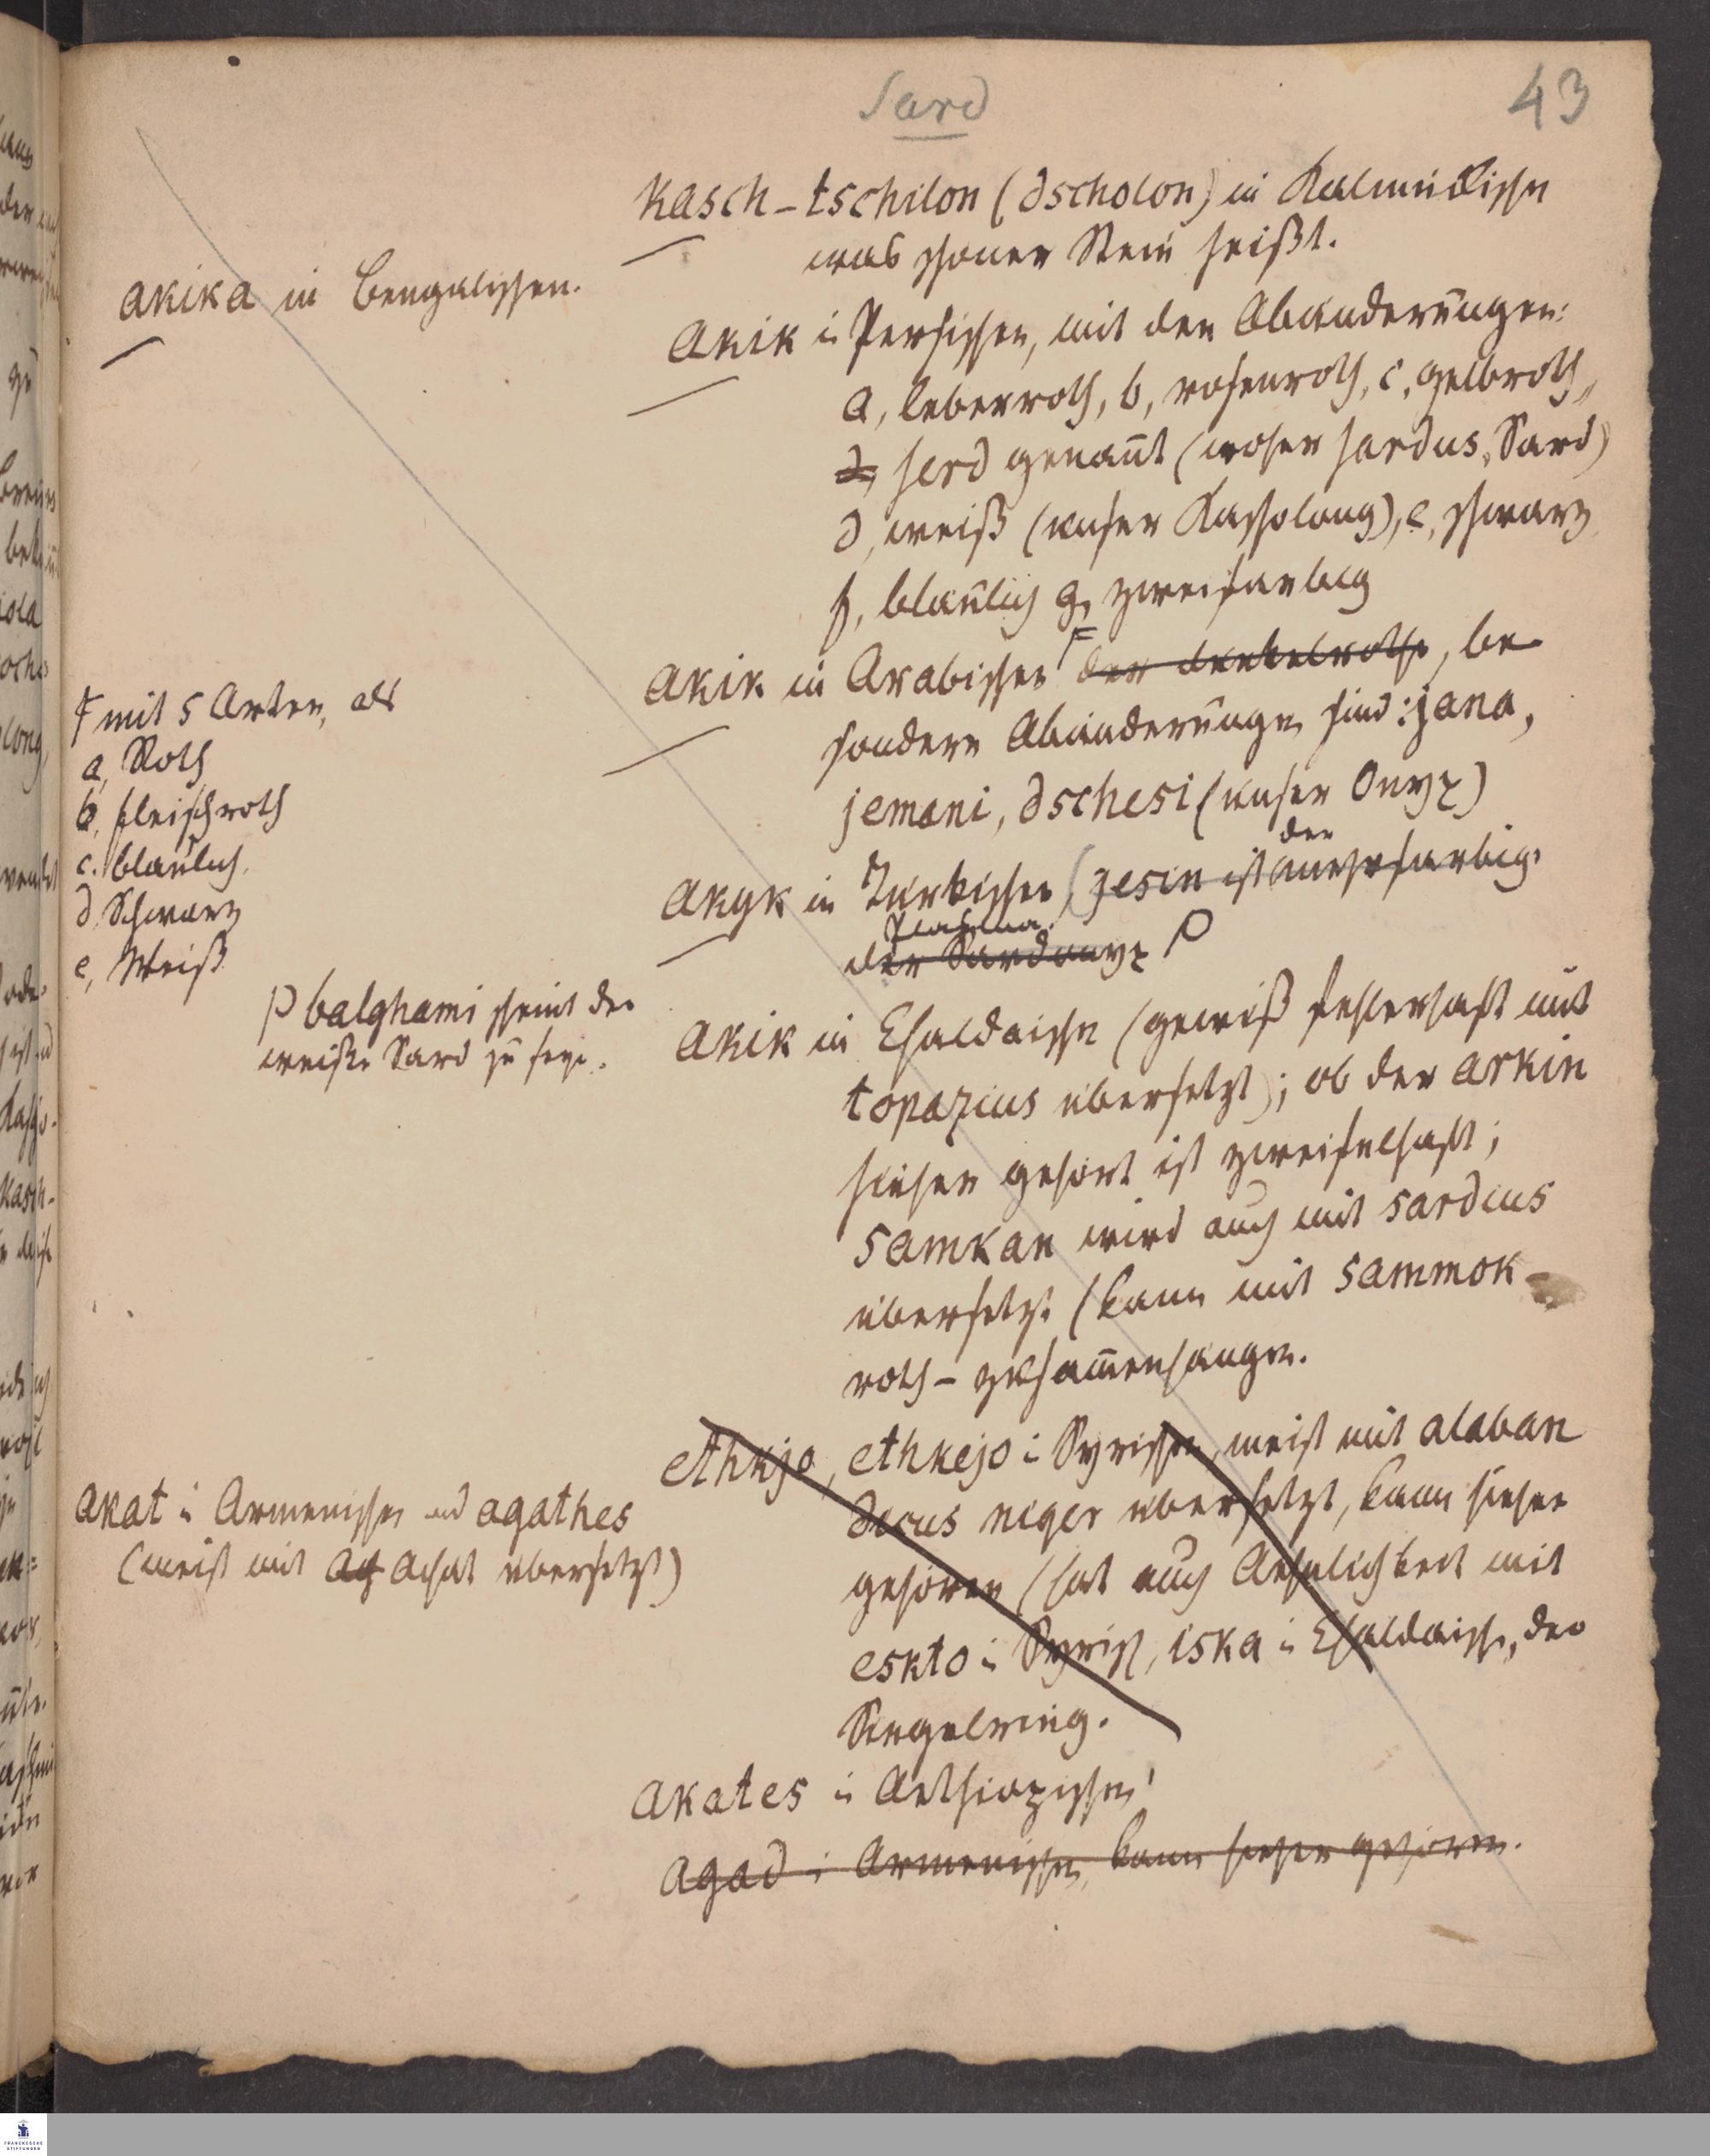 Sard
43
Kasch-tschilon (dscholon) in Kalmückischen
was schöner Stein heißt.
akika in Bengalischen.
Akik i Persischen, mit den Abänderungen:
a, leberroth, b, rosenroth, c, gelbroth,
d, serd genan̄t (woher sardus, Sard)
d, weiß (unser Kascholong), e, schwarz
f, blaulich g, zweifarbig
Akik in Arabischen der dunkelrothe, be-
sondere Abänderungen sind: jana,
jemani, dschesi (unser Onyx)
mit 5 Arten, als
a, Roth
b, fleischroth
c. blaulich.
d, Schwarz
e, Weiß
Akyk in Türkischen, (jesin ist der mehrfarbige
der Sardonyx
balghami scheint der
weiße Sard zu seyn.
Akik in Chaldäischen (gewiß fehlerhaft mit
topazius übersetzt); ob der arkin
hieher gehört ist zweifelhaft;
samkan wird auch mit sardius
übersetzt (kann mit sammok
roth - zusam̄enhangen.
ethkjo, ethkejo i Syrischen, meist mit alaban
dicus niger übersetzt, kann hieher
gehören (hat auch Aehnlichkeit mit
eskto i Syrisch, iska i Chaldäisch, der
Siegelring.
Akat i Armenischen und agathes
(meist mit Ag Achat übersetzt)
Akates i Aethiopischen
Agad i Armenischen, kann hieher gehören.
FRANCKESCHE
STIFTUNGEN